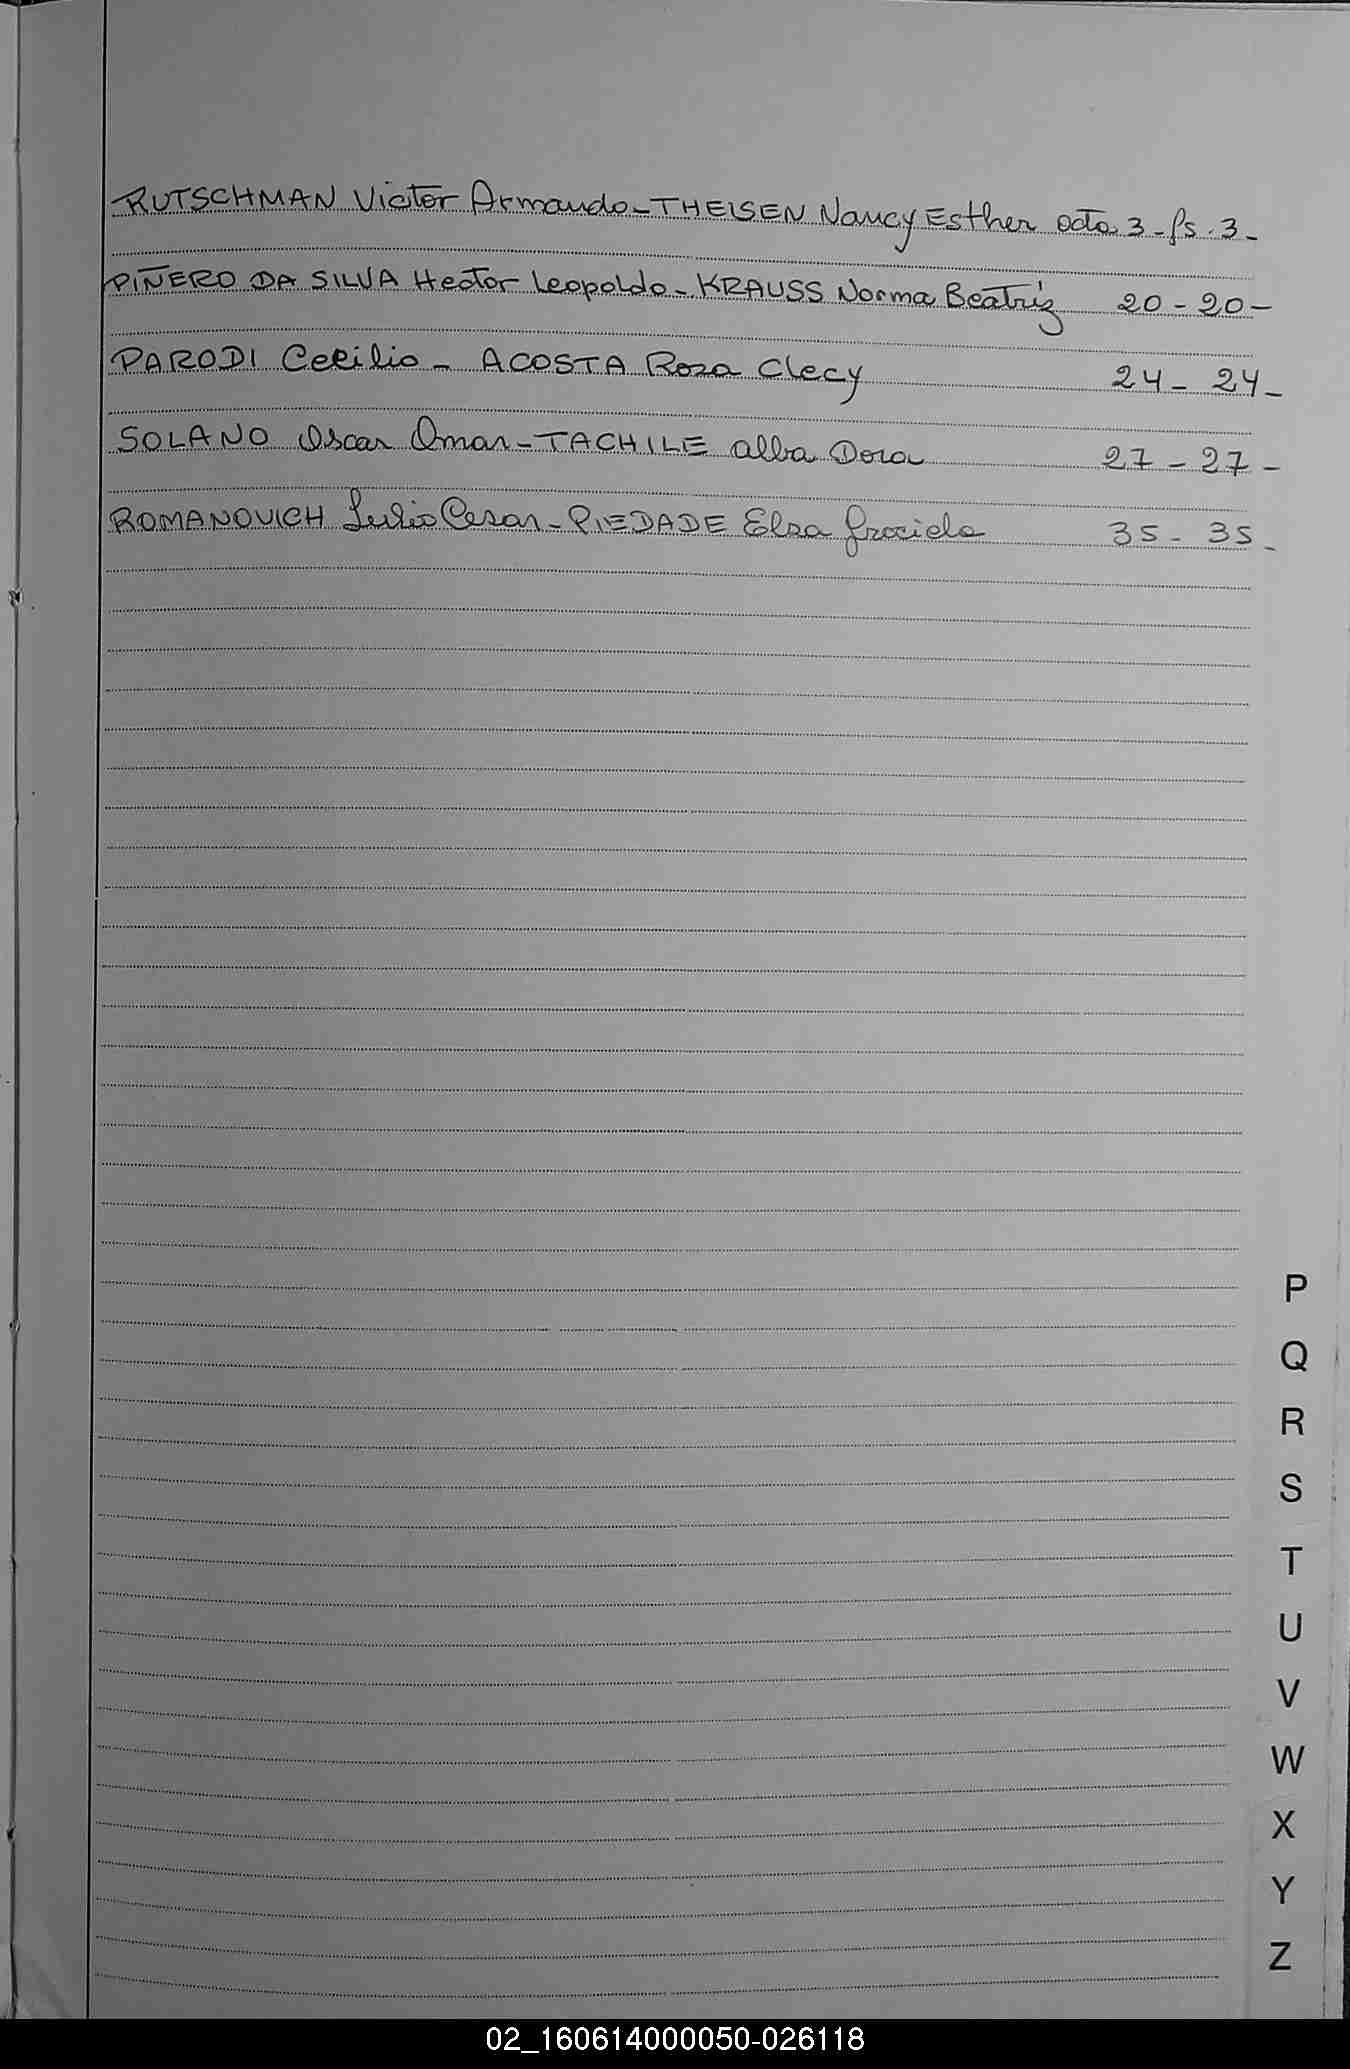 RUTSCHMAN Victor Armando - THEISEN Nancy Esther acta 3 - fs. 3 -
PIÑERO DA SILVA Hector Leopoldo - KRAUSS Norma Beatriz 20 - 20 -
PARODI Cecilio - ACOSTA Rosa Clecy 24 - 24 -
SOLANO Oscar Omar - TACHILE Alba Dora 27 - 27 -
ROMANOVICH Julio Cesar - PIEDADE Elsa Graciela 35 - 35 -
P
Q
R
S
T
U
V
W
X
Y
Z
02_160614000050-026118